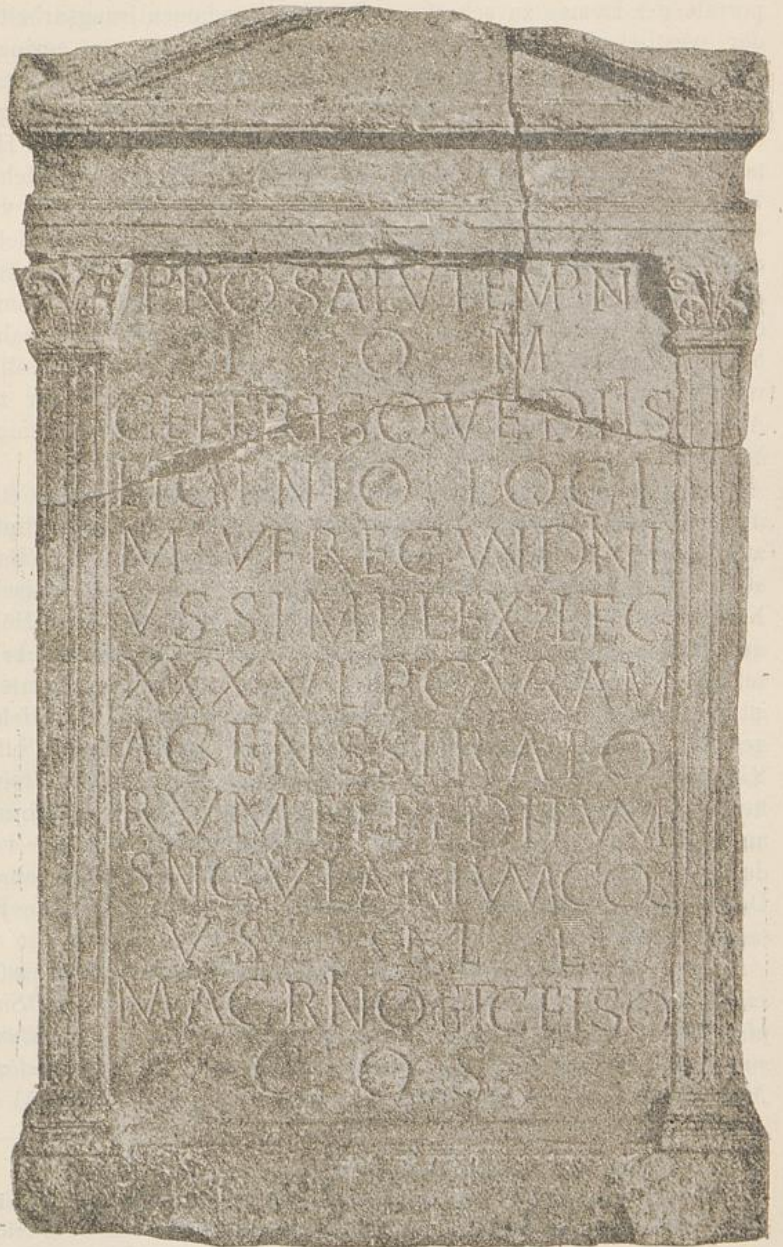 PRO SALVTE MP N
I O M
CETERISQVE DIIS
ET GENIO LOCI
M VERECVNDINI
VS SIMPLEX LEG
XXX V L P CVRAM
AGENS STRATO
RVM ET PEDITVM
SNGVLARIVM COS
V S L
MACRNO ET CELSO
C O S